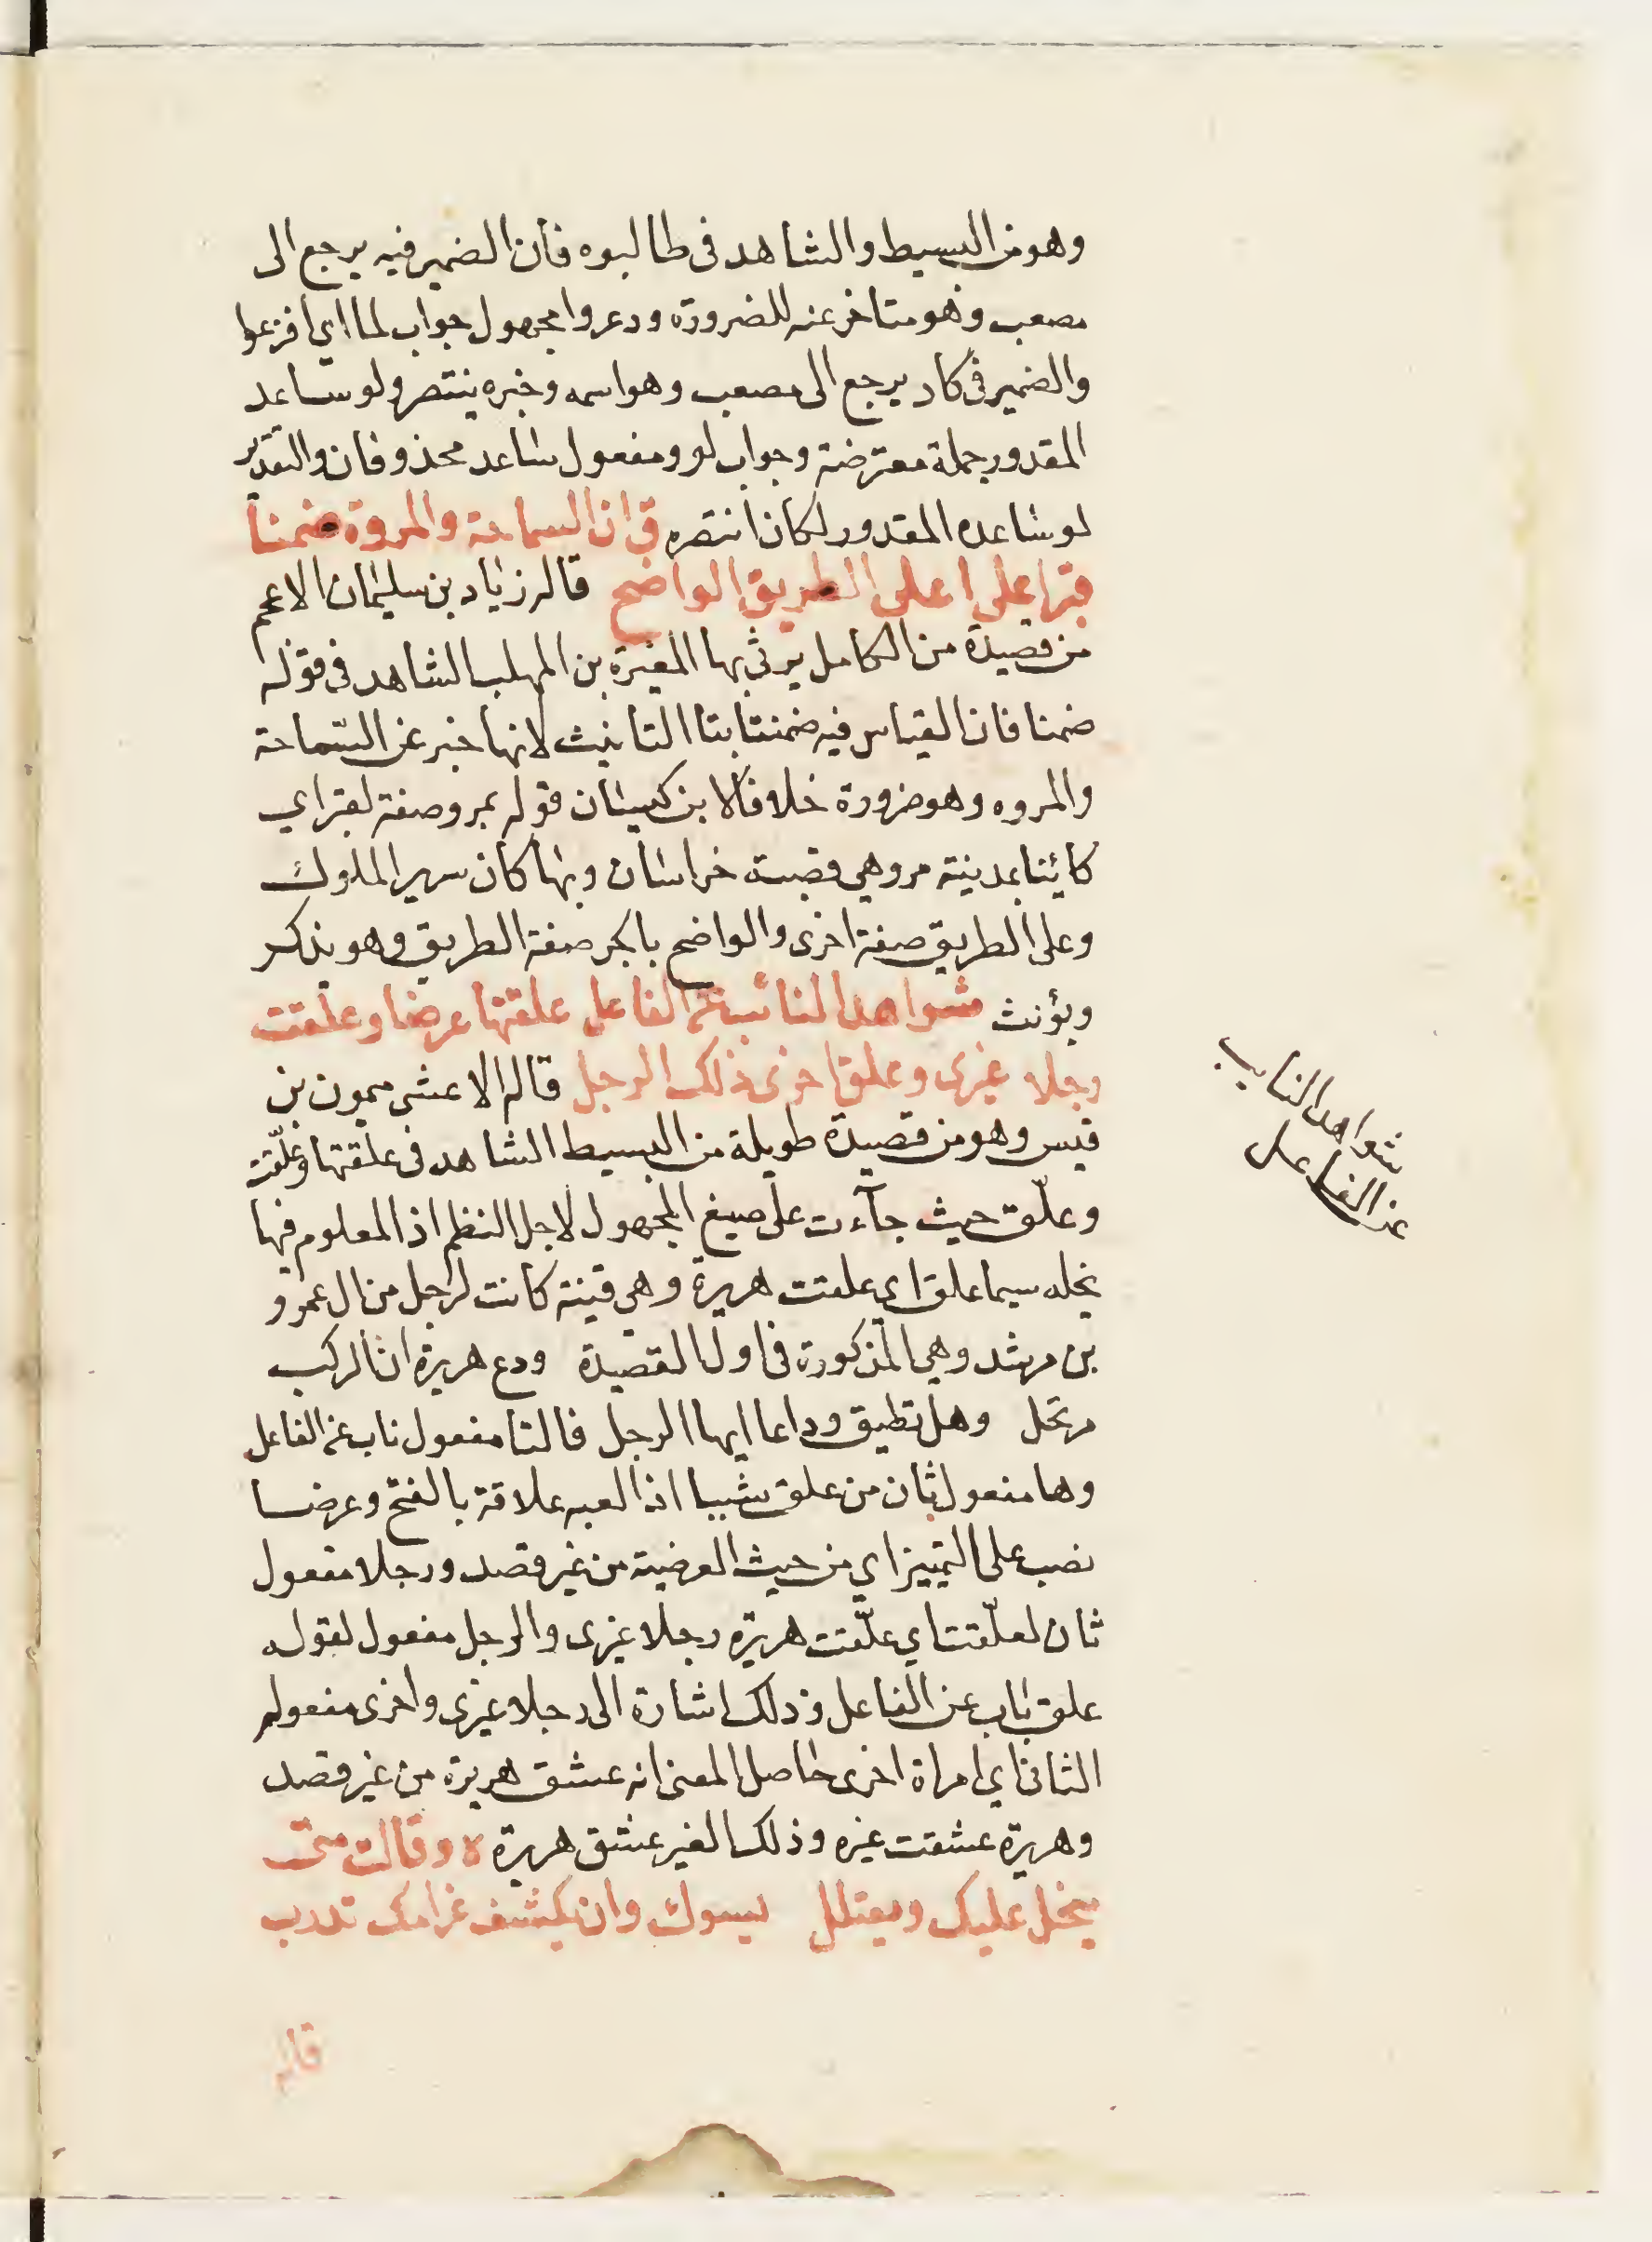 وهو من البسيط والشاهد فى طالبوه فأن الضمير فيه يرجع الى
مصعب وهو متاخر عنه للضرورة ودعروا مجهول جواب لما اي افزعوا
والضمير فى كاد يرجع الى مصعب وهو اسمه وخبره ينتصر ولو ساعد
المقدور جملة معترضة وجواب لو ومفعول ساعد محذوفان والتقدير
لو ساعده المقدور لكان انتصر ه ق ان السماحة والمروة ضمنا
قبرا على اعلى الطريق الواضح قاله زياد بن سليمان الاعجم
من قصيدة من الكامل يرثى بها المغيرة بن المهلب الشاهد فى قوله
ضمنا فان القياس فيه ضمنتا بتا التانيث لانها خبر عن السّماحة
والمروه وهو ضرورة خلافا لابن كيسان قوله بمرو صفة لقبر اي
كائنا بمدينة مرو هي قصبة خراسان وبها كان سرير الملوك
وعلى الطريق صفة اخرى والواضح بالجر صفة الطريق وهو يذكر
ويؤنث شواهد النائب عن الفاعل علقتها عرضا وعلقت
رجلا غيرى وعلق اخرى ذلك الرجل قاله الاعشى ميمون بن
قيس وهو من قصيدة طويلة من البسيط الشاهد فى علقتها وعلّقت
وعلّق حيث جآءت على صيغ المجهول لاجل النظم اذ المعلوم فيها
يخله سيما علق اي علقت هريرة وهي قينة كانت لرجل من ال عمرو
بن مرثد وهي المذكورة فى اول القصيدة ودع هريرة ان الركب
مرتحل وهل تطيق وداعا ايها الرجل فالتا مفعول ناب عن الفاعل
وها مفعول ثان من علق شيبا اذا لعبه علاقة بالفتح وعرضا
نصب على التمييز اي من حيث العرضية من غير قصد ورجلا مفعول
ثان لعلّقت اي علّقت هريرة رجلا غيرى والرجل مفعول لقوله
علق ناب عن الفاعل وذلك اشارة الى رجلا غيرى واخرى مفعوله
الثانى اي امراة اخرى حاصل المعنى انه عشق هريرة من غير قصد
وهريرة عشقت غيره وذلك الغير عشق هريرة ه ه وقالت متى
يبخل عليك ويعتلل يسوك وان يكشف غرامك تدرب
قاله
شواهد النايب
عن الفاعل